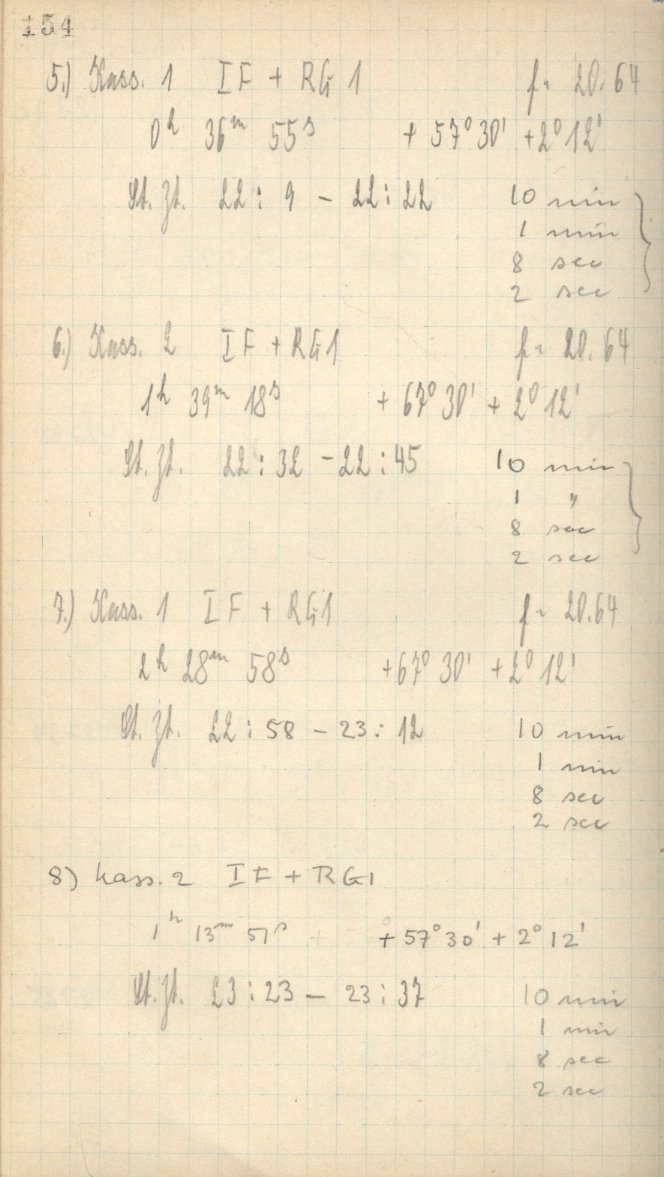 154
5.) Kass. 1 IF + RG 1 f = 20.64
0h 36m 55s + 57° 30' + 2° 12'
St. Zt. 22 : 9 - 22 : 22 10 min
1 min
8 sec
2 sec
6.) Kass. 2 IF + RG1 f = 20.64
1h 39m 18s + 67° 30' + 2° 12'
St. Zt. 22 : 32 - 22 : 45 10 min
1 "
8 sec
2 sec
7.) Kass. 1 IF + RG1 f = 20.64
2h 28m 58s + 67° 30' + 2° 12'
St. Zt. 22 : 58 - 23 : 12 10 min
1 min
8 sec
2 sec
8) Kass. 2 IF + RG1
1h 13m 51s + 57° 30' + 2° 12'
St. Zt. 23 : 23 - 23 : 37 10 min
1 min
8 sec
2 sec